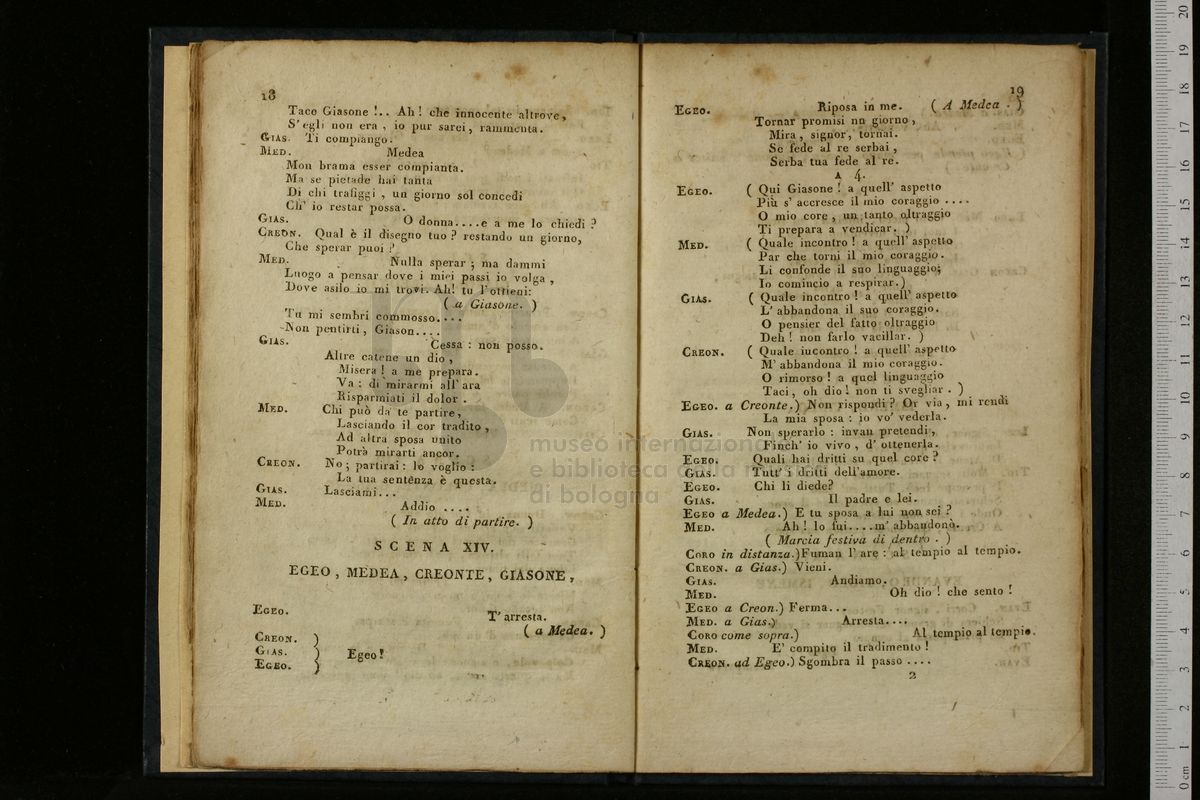 18
Tace Giasone !.. Ah ! che innocente altrove,
S' egli non era , io pur sarei, rammenta.
GIAS. Ti compiango.
MED. Medea
Mon brama esser compianta.
Ma se pietade hai tanta
Di chi trafiggi , un giorno sol concedi
Ch' io restar possa.
GIAS. O donna....e a me lo chiedi ?
CREON. Qual è il disegno tuo ? restando un giorno,
Che sperar puoi ?
MED. Nulla sperar ; ma dammi
Luogo a pensar dove i miei passi io volga ,
Dove asilo io mi trovi. Ah! tu l'ottieni:
( a Giasone. )
Tu mi sembri commosso....
Non pentirti, Giason....
GIAS. Cessa : non posso.
Altre catene un dio ,
Misera ! a me prepara.
Va : di mirarmi all' ara
Risparmiati il dolor .
MED. Chi può da te partire,
Lasciando il cor tradito ,
Ad altra sposa unito
Potrà mirarti ancor.
CREON. No ; partirai : lo voglio :
La tua sentenza è questa.
GIAS. Lasciami...
MED. Addio ....
( In atto di partire. )
SCENA XIV.
EGEO , MEDEA , CREONTE , GIASONE ,
EGEO. T' arresta.
( a Medea. )
CREON. )
GIAS. ) Egeo !
EGEO. )
19
EGEO. Riposa in me. ( A Medea . )
Tornar promisi un giorno ,
Mira , signor, tornai.
Se fede al re serbai ,
Serba tua fede al re.
A 4.
EGEO. ( Qui Giasone ! a quell' aspetto
Più s' accresce il mio coraggio ....
O mio core , un tanto oltraggio
Ti prepara a vendicar. )
MED. ( Quale incontro ! a quell' aspetto
Par che torni il mio coraggio.
Li confonde il suo linguaggio;
Io comincio a respirar.)
GIAS. ( Quale incontro ! a quell' aspetto
L' abbandona il suo coraggio.
O pensier del fatto oltraggio
Deh ! non farlo vacillar. )
CREON. ( Quale incontro ! a quell' aspetto
M' abbandona il mio coraggio.
O rimorso ! a quel linguaggio
Taci, oh dio ! non ti svegliar . )
EGEO. a Creonte.) Non rispondi ? Or via , mi rendi
La mia sposa : io vo' vederla.
GIAS. Non sperarlo : invan pretendi ,
Finch' io vivo , d' ottenerla.
EGEO. Quali hai dritti su quel core ?
GIAS. Tutt' i dritti dell'amore.
EGEO. Chi li diede?
GIAS. Il padre e lei.
EGEO a Medea.) E tu sposa a lui non sei ?
MED. Ah ! lo fui....m' abbandonò.
( Marcia festiva di dentro . )
CORO in distanza.)Fuman l' are : al tempio al tempio.
CREON. a Gias.) Vieni.
GIAS. Andiamo.
MED. Oh dio ! che sento !
EGEO a Creon.) Ferma...
MED. a Gias.) Arresta....
CORO come sopra.) Al tempio al tempio.
MED. E' compito il tradimento !
CREON. ad Egeo.) Sgombra il passo ....
2
museo internazionale
e biblioteca della musica
di bologna
0 cm 1 2 3 4 5 6 7 8 9 10 11 12 13 14 15 16 17 18 19 20